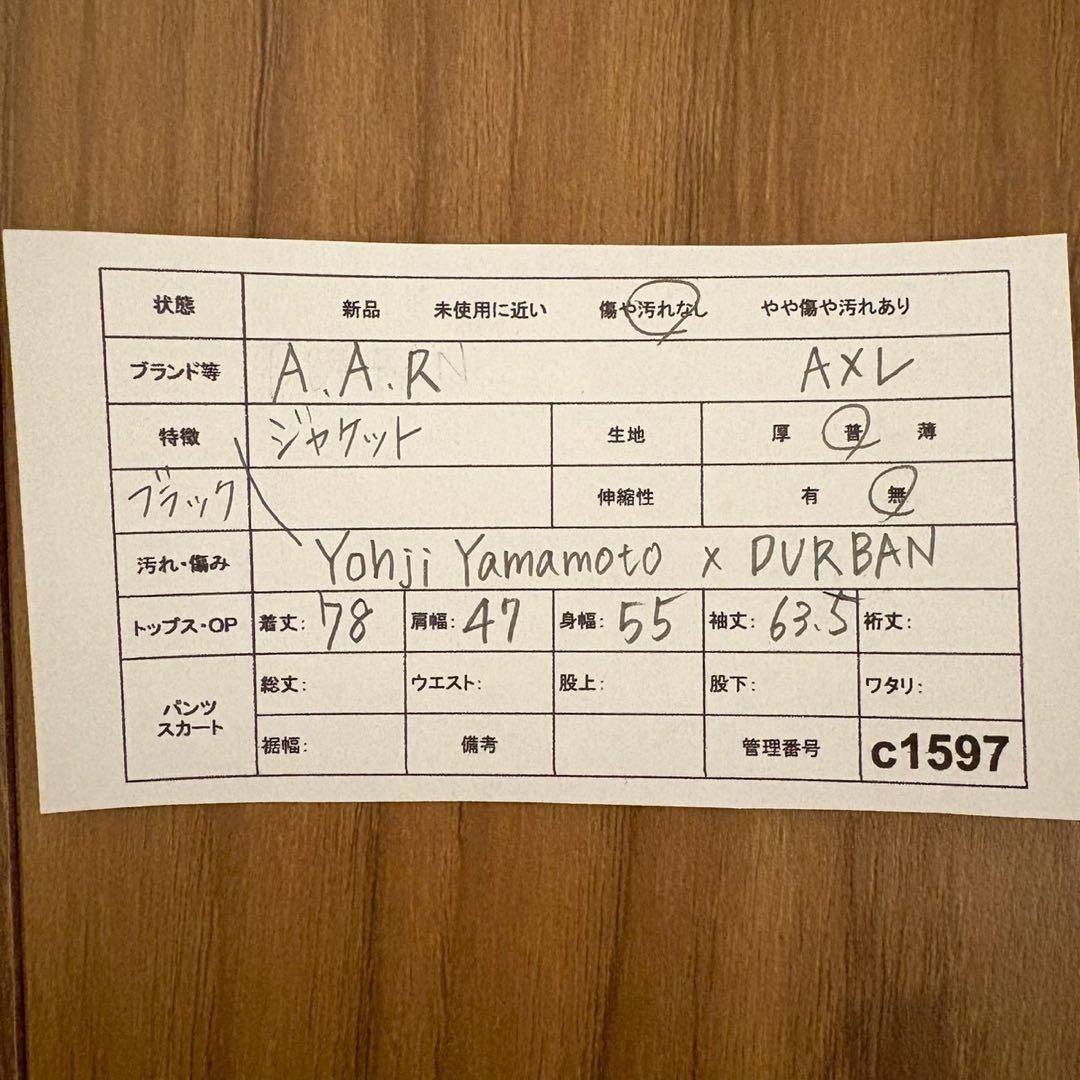 状態 新品 未使用に近い 傷や汚れなし やや傷や汚れあり
ブランド等 A.A.R AXL
特徴 ジャケット 生地 厚 普 薄
ブラック 伸縮性 有 無
汚れ・傷み Yohji Yamamoto x DURBAN
トップス・OP 着丈: 78 肩幅: 47 身幅: 55 袖丈: 63.5 裄丈:
パンツ スカート 総丈: ウエスト: 股上: 股下: ワタリ:
裾幅: 備考 管理番号 c1597